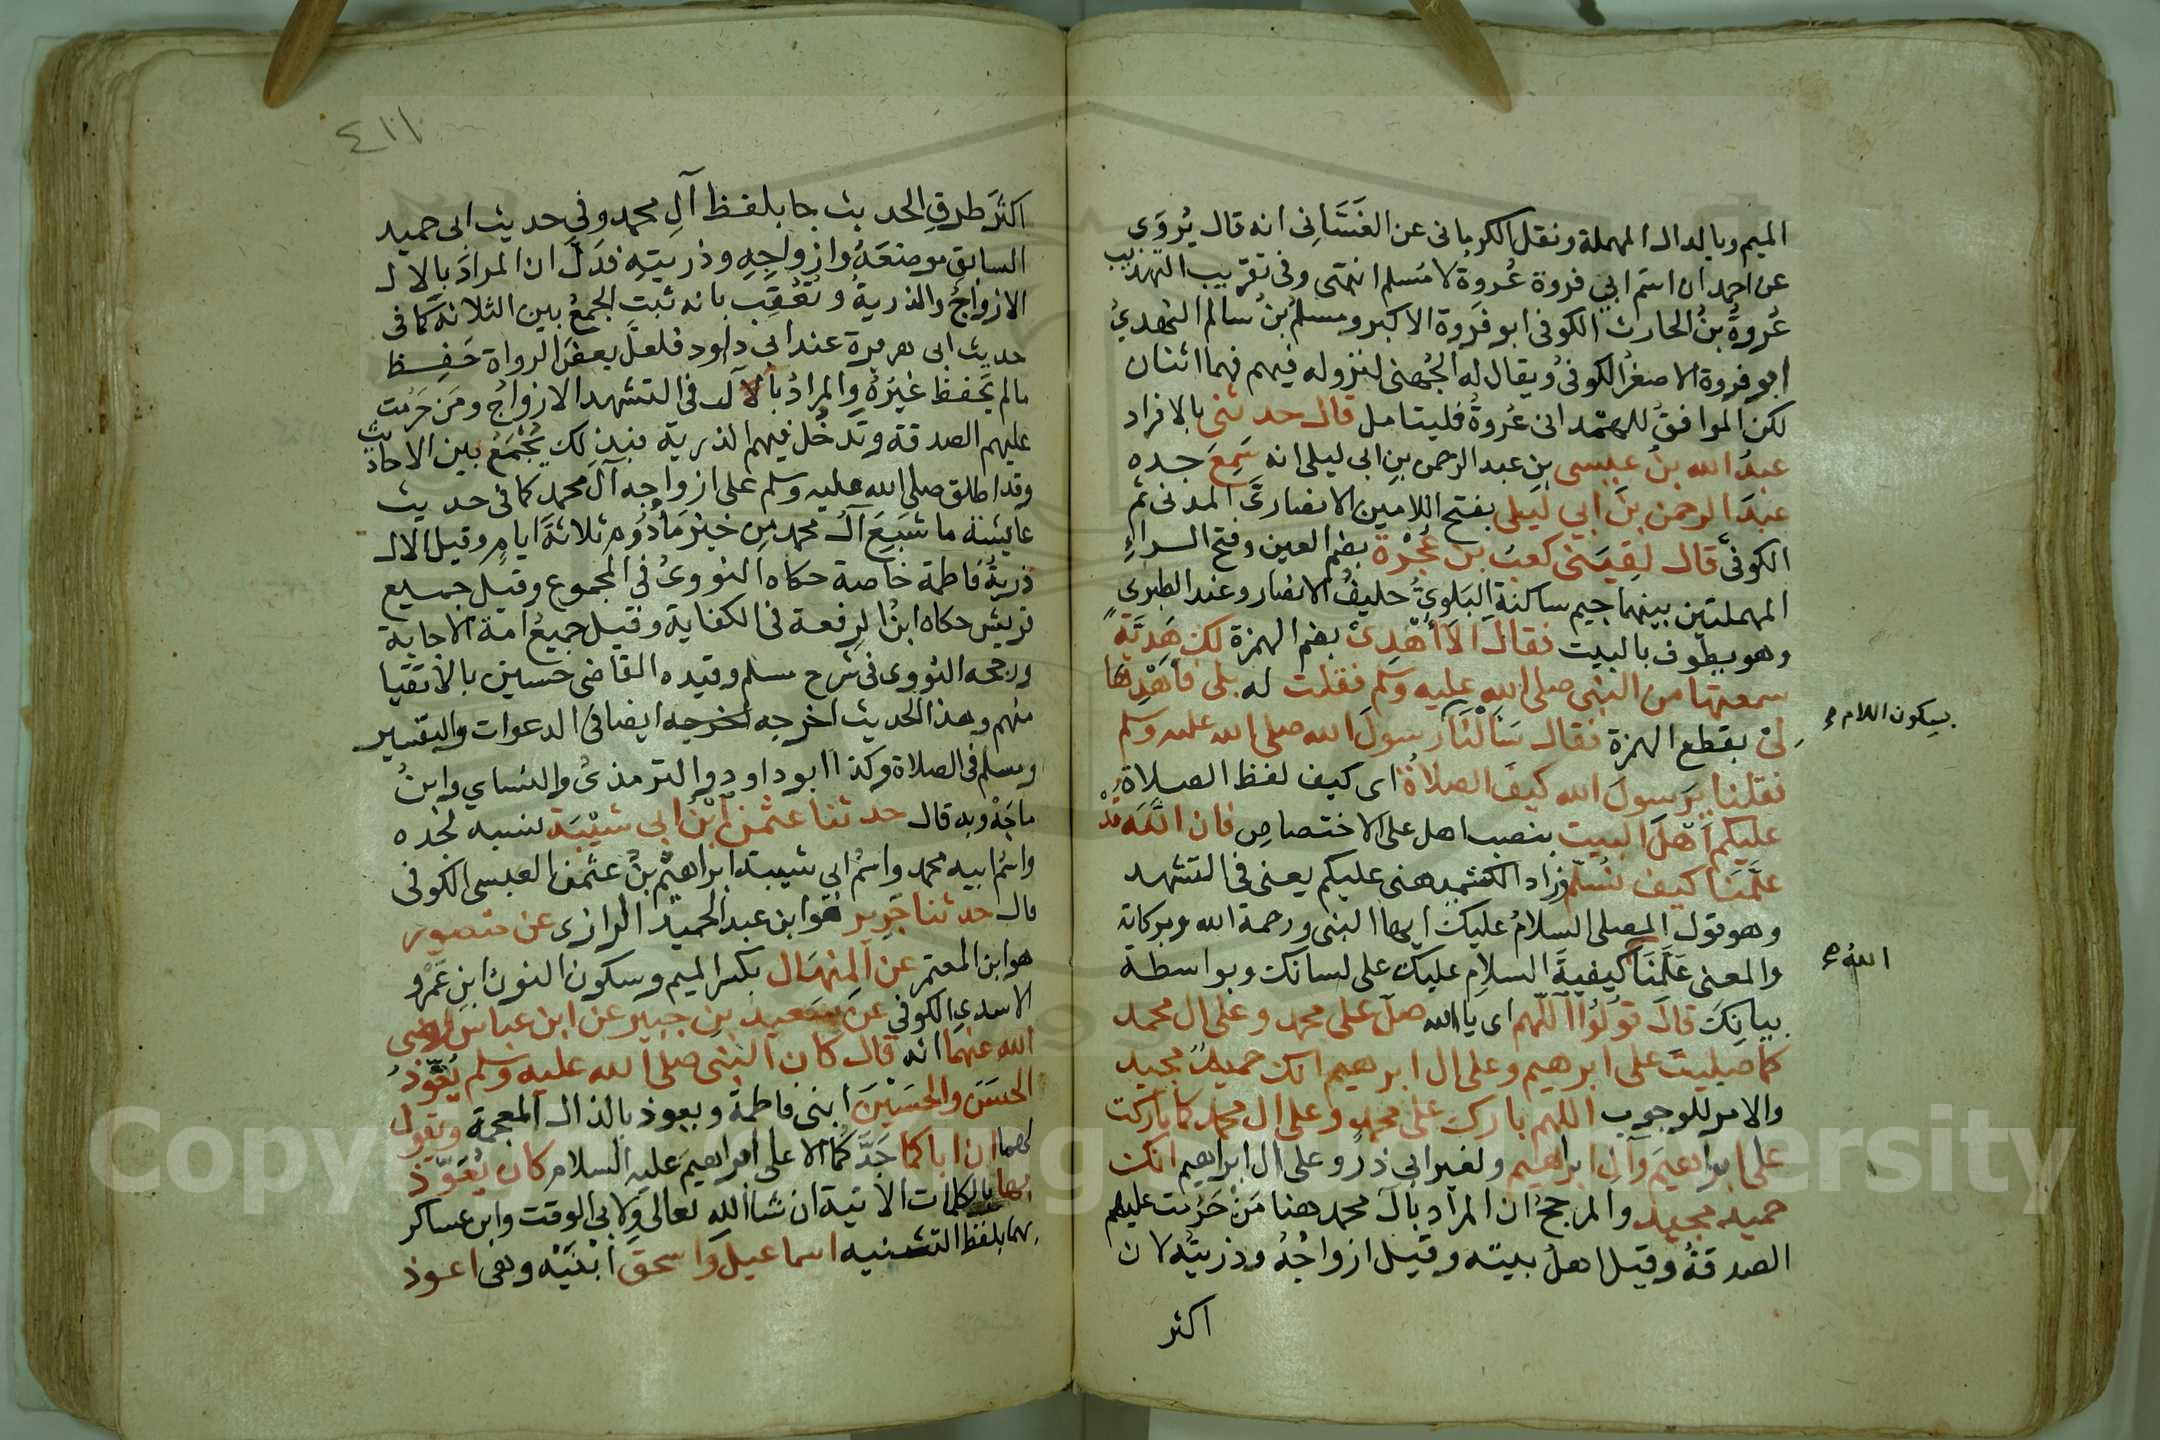 الميم وبالدال المهملة ونقل الكرماني عن الغساني انه قال يُروَى
عن احمد ان اسم ابي فروة عُروةُ لا مُسلم انتهى وفي تقريب التهذيب
عُروةُ بنُ الحارث الكوفي ابو فروة الاكبر ومسلمُ بنُ سالم النهديُّ
ابو فروة الاصغرُ الكوفيُّ ويقال له الجُهني لنزوله فيهم فهما اثنان
لكن الموافقُ للمعتمد اني عُروةُ فليتامل قال حدثني بالافراد
عبدُ الله بنُ عيسى بنِ عبد الرحمن بنِ ابي ليلى انه سَمِعَ جده
عبدَ الرحمن بنَ ابي لَيلى بفتح اللامين الانصاريَّ المدني ثم
الكوفيَّ قال لقِيَني كعبُ بن عُجْرةَ بضم العين وفتح الراءِ
المهملتين بينهما جيم ساكنة البَلويُّ حليفُ الانصار وعند الطبري
وهو يطوف بالبيت فقال الَا أُهْدِيْ بضم الهمزة لك هَدِيَّةً
سمعتها من النبي صلى الله عليه وسلم فقلت له بلى فاَهْدِها
لي بقطع الهمزة فقال سَاَلْنَا رسولَ الله صلى الله عليه وسلم
بسكون اللام
فقلنا يرَسولَ الله كيفَ الصلاةُ اي كيف لفظ الصلاة
عليكم اَهْلَ البيت بنصب اهل على الاختصاص فان الله قَدْ
علَّمَنا كيف نُسلّم وزاد الكشميهني عليكم يعني في التشهد
وهو قول المصلى السلامُ عليك ايها النبي ورحمة الله وبركاته
والمعنى عَلَّمَنَا كيفيةَ السلامِ عليك على لسانك وبواسطة
اللهُ
بيانِكَ قالَ قُولُوا اللّهم اي يا الله صلّ على محمد وعلى ال محمد
كما صليتَ على ابرهيم وعلى ال ابرهيم انك حميدٌ مجيد
والامر للوجوب اللهم بارك على محمد وعلى ال محمد كما باركت
على ابراهيمَ وآلِ ابراهيم ولغير ابي ذر وعلى ال ابراهيم انك
حميد مجيد والمرجحُ ان المراد بآل محمد هنا مَنْ حَرُمت عليهم
الصدقةُ وقيل اهلُ بيته وقيل ازواجُهُ وذريتُه لان
اكثر
٤١١
اكثَرَ طرقِ الحديث جا بلفظ آلِ محمد وفي حديث ابي حميد
السابق موضعَهُ وازواجِهِ وذريتِهِ فدَلَّ ان المرادَ بالال
الازواجُ والذريةُ وتُعُقِّبَ بانه ثبت الجمعُ بين الثلاثة كما في
حديث ابي هريرة عند ابي داود فلعلَّ بعضَ الرواة حَفِظ
ما لم يَحفظ غيرُهُ والمرادُ بالآل في التشهد الازواجُ ومَن حَرُمت
عليهم الصدقة وتَدخُل فيهم الذرية فبذلك يُجْمَعُ بين الاحاديث
وقد اطلق صلى الله عليه وسلم على ازواجه آلَ محمد كما في حديث
عايشة ما شَبِعَ آلُ محمد مِن خبْز مَأدُومٍ ثلاثةَ ايامٍ وقيل الآل
ذريةُ فاطمة خاصة حكاه النوويُ في المجموع وقيل جميع
قريش حكاه ابنُ الرفعة في الكفاية وقيل جميعُ امة الاجابة
ورجحه النووي في شرح مسلم وقيده القاضي حسين بالاتقيا
منهم وهذا الحديث اخرجه اخرجه ايضا في الدعوات والتفسير
ومسلم في الصلاة وكذا ابو داود والترمذيُ والنساي وابنُ
ماجَهْ وبه قال حدثنا عثمن ابْنُ ابي شيْبَة نسبه لجده
واسمُ ابيه محمد واسمُ ابي شيبة ابراهيْمُ بْنُ عثمن العبسي الكوفي
قال حدثنا جَرِير هُوا بن عبد الحميد الرازي عن منصور
هو ابن المعتمر عن المِنهَال بكسر الميم وسكون النون ابنِ عَمْرو
الاسدي الكوفي عن سَعيد بن جبير عن ابن عباس رضي
الله عنهما انه قال كان النبي صلى الله عليه وسلم يُعَوِّذُ
الحسَنَ والحسَيْنَ ابني فاطمة ويعوذ بالذال المعجمة ويَقول
لهما ان اباكما جَدَّكُما الاعلى ابراهيمَ عليه السلام كان يُعَوِّذ
بها بالكلمات الاتية ان شا الله تعالى ولابي الوقت وابن عساكر
بهما بلفظ التثنيه اسماعيلَ واسحقَ ابْنَيْه وهي اعوذ